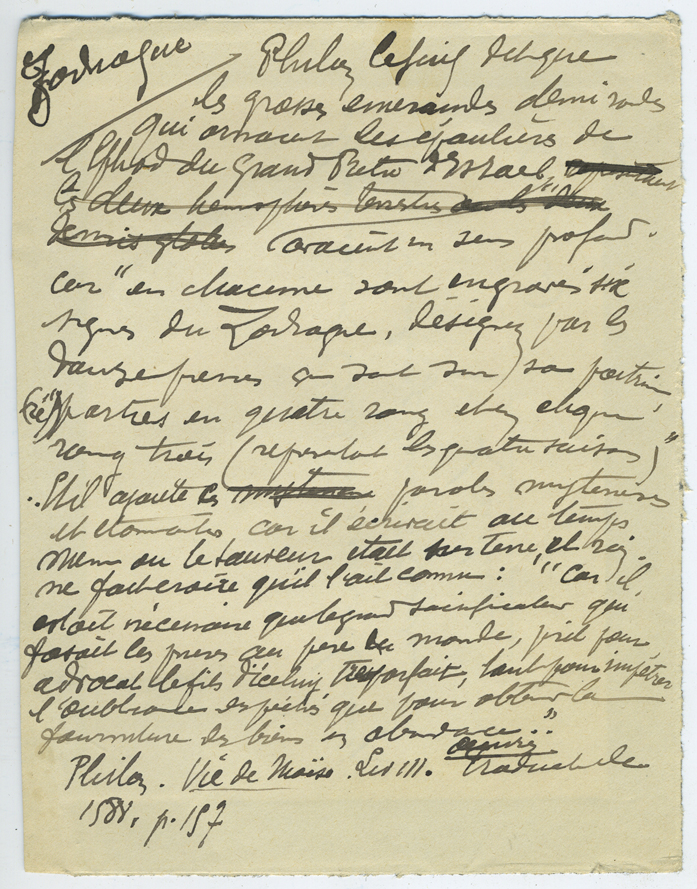 Zodiaque
Philon le juif dit que
les grosses emeraudes demi rondes
qui ornaient les épaulières de
l'Ephod du Grand Pretre d'Israel,
les deux hemisphères terrestres
demis globes avaient un sens profond.
car "en chacune sont engravés six
signes du Zodiaque, désignez par les
sur sa poitrine,
(ré)parties en quatre rang et en chaque
rang trois (represētāt les quatre saisons)"
..Et il ajoute ces paroles mysterieuses
et etonnantes car il écrivait au temps
meme ou le Sauveur etait sur terre, et rien
ne fait croire qu'il l'ait connu : "Car il
estoit nécessaire que le grand sacrificateur qui
faisait les prieres au pere du monde, prit pour
advocat le fils d'iceluy tres parfait, tant pour impétrer
l'oubliance es péchés que pour obtenir la
fourniture des biens en abondance.."
Philon. Vie de Moïse. Liv III. œuvres traduct de
1588, p. 157